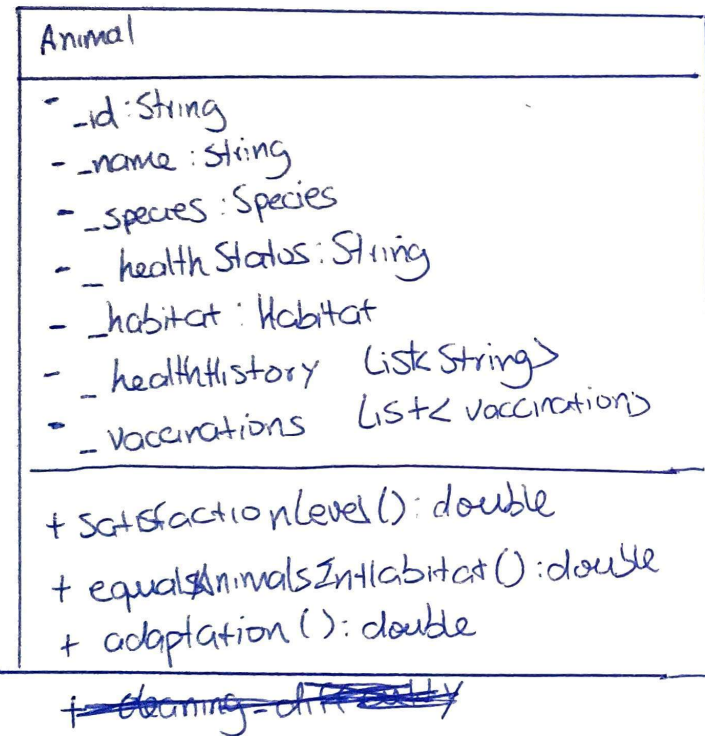 Animal
- _id : String
- _name : String
- _species : Species
- _ healthStatus : String
- _habitat : Habitat
- _ healthHistory List<String>
- _ vaccinations List< vaccination>
+ satisfactionLevel() : double
+ equalsAnimalsInHabitat() : double
+ adaptation() : double
+ cleaning_difficulty